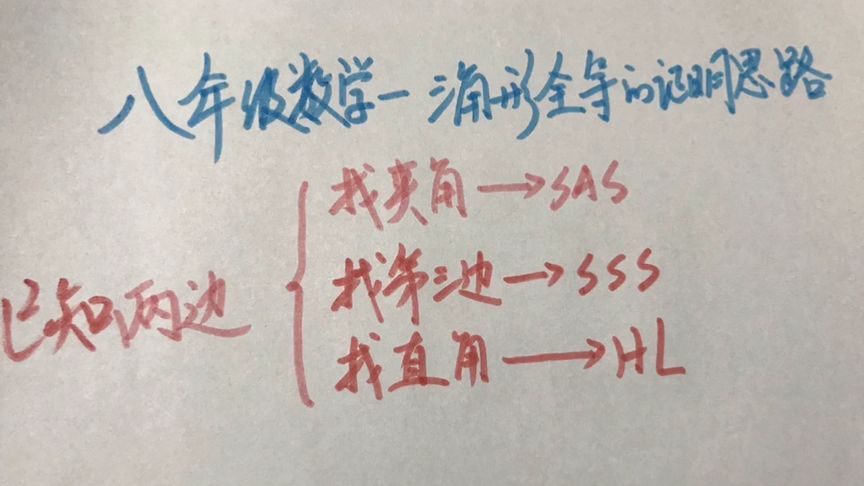 八年级数学一三角形全等的证明思路
已知两边
找夹角→SAS
找第三边→SSS
找直角→HL